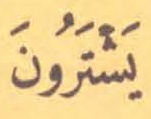 يَشْتَرُونَ